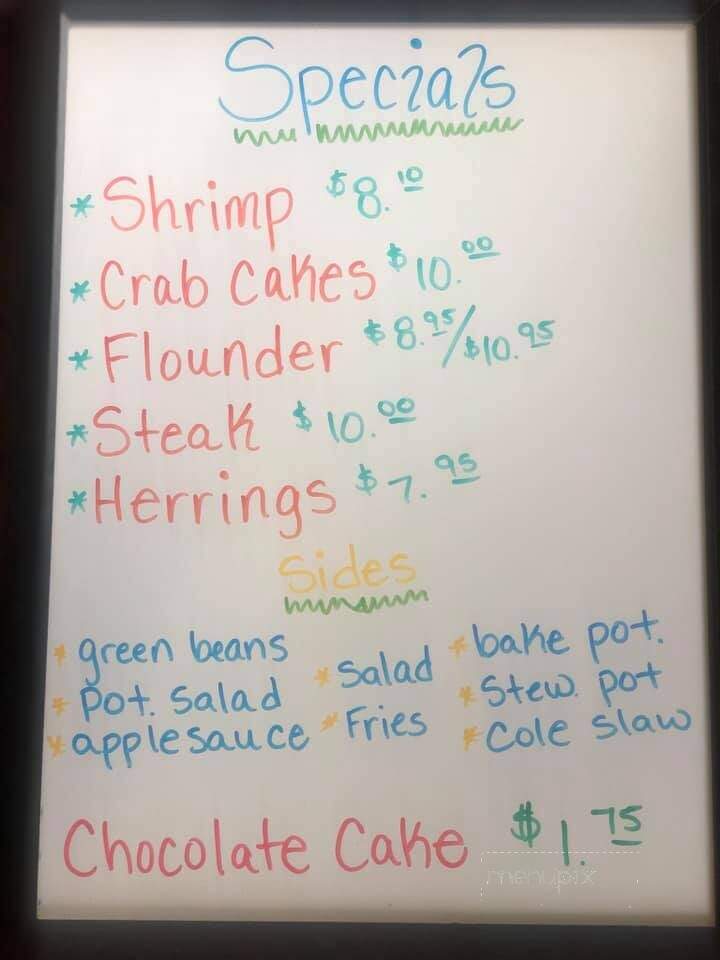 Specials
* Shrimp $8.10
* Crab Cakes $10.00
* Flounder $8.95/$10.95
* Steak $10.00
* Herrings $7.95
Sides
* green beans
* Pot. Salad
* applesauce
* Salad
* Fries
* bake pot.
* Stew. pot
* Cole slaw
Chocolate Cake $1.75
menupix